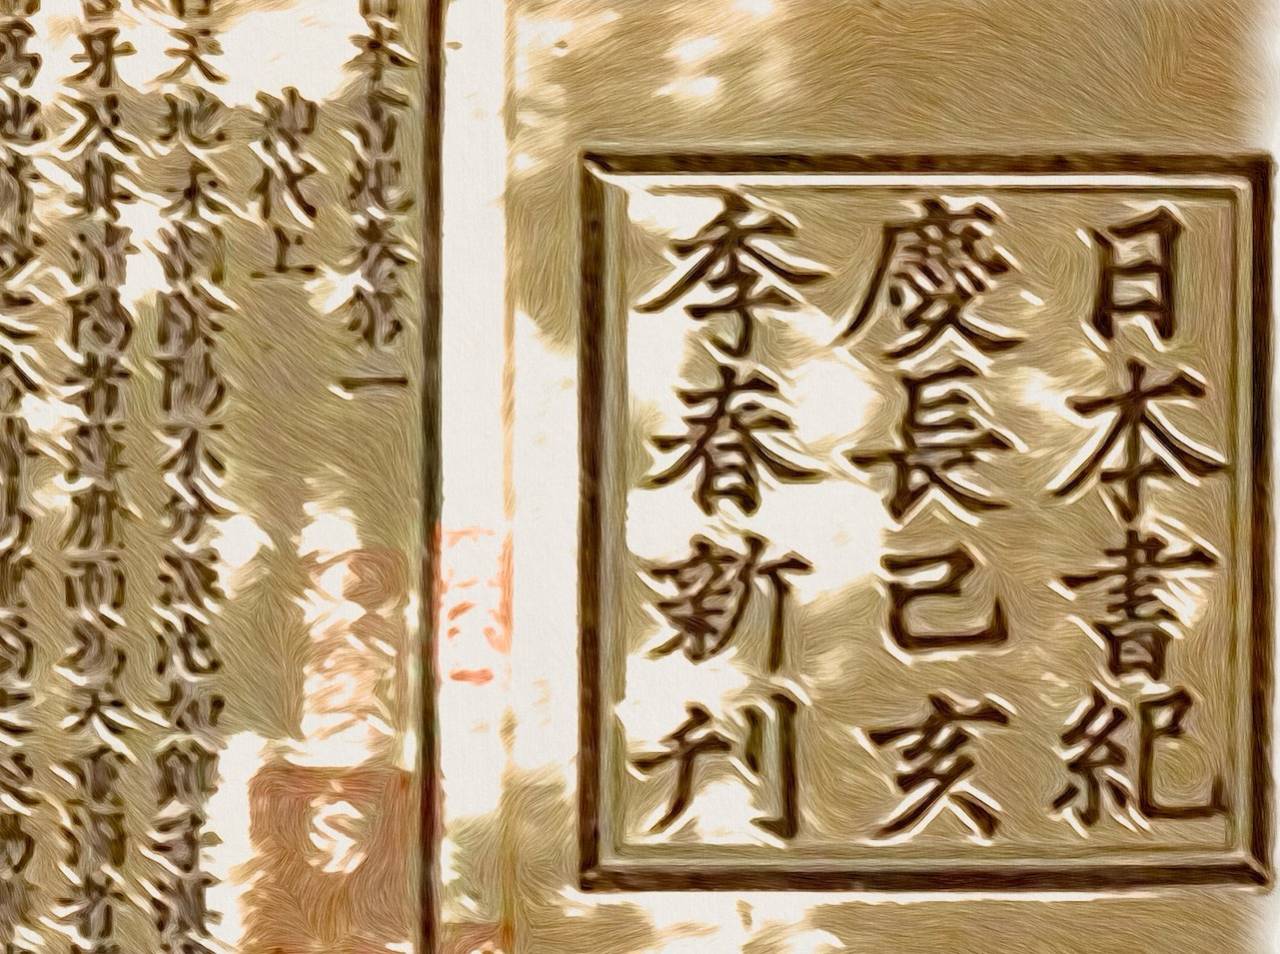 日本書紀
慶長己亥
季春新刊
日本書紀卷第一
神代上
古天地未剖陰陽不分渾沌如鷄子溟
含牙及其淸陽者薄靡而爲天重濁者